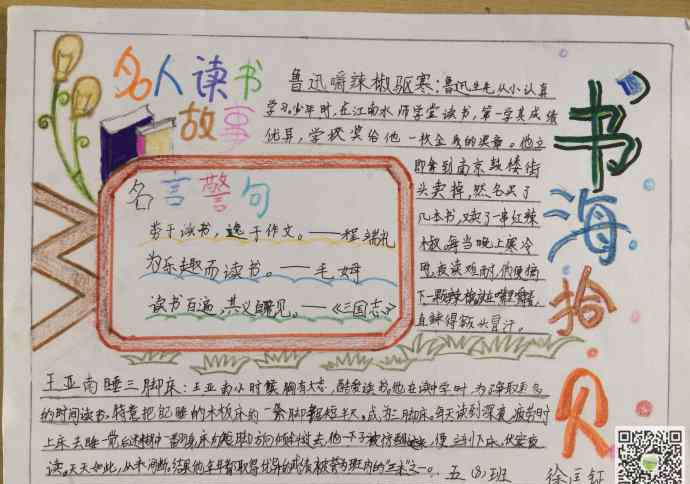 名人读书
故事
鲁迅嚼辣椒驱寒：鲁迅先生从小认真
学习。少年时，在江南水师学堂读书，第一学其成绩
优异，学校奖给他一枚金质的奖章。他立
即拿到南京鼓楼街
头卖掉，然后买了
几本书，又买了一串红辣
椒。每当晚上寒冷
时，夜读难耐，他便摘
下一颗辣椒，放在嘴里嚼着，
直辣得额头冒汗。
书海拾贝
名言警句
劳于读书，逸于作文。——程端礼
为乐趣而读书。——毛姆
读书百遍，其义自见。——《三国志》
王亚南睡三脚床：王亚南小时候胸有大志，酷爱读书。他在读中学时，为了争取更多
的时间读书，特意把自己睡的木板床的一条脚锯短半尺，成为三脚床。每天读到深夜，疲劳时
上床去睡一觉后迷糊中一翻身，床向短脚方向倾斜过去，他一下子被惊醒过来，便立刻下床，伏案夜
读。天天如此，从未间断。结果他年年都取得优异的成绩，被誉为班内的三杰之一。
五（8）班
徐